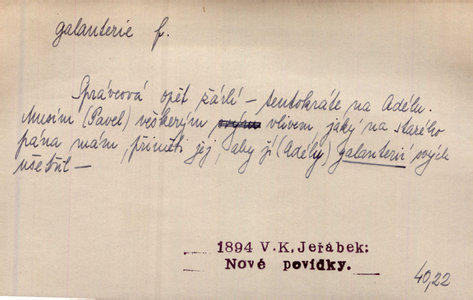 galanterie f.
Správcová opět žárlí – tentokráte na Adélu.
Musím (Pavel) veškerým svým vlivem, jaký na starého
pána mám, přiměti jej, aby jí (Adély) galanterií svých
ušetřil –
1894 V.K. Jeřábek:
Nové povídky.
40,22